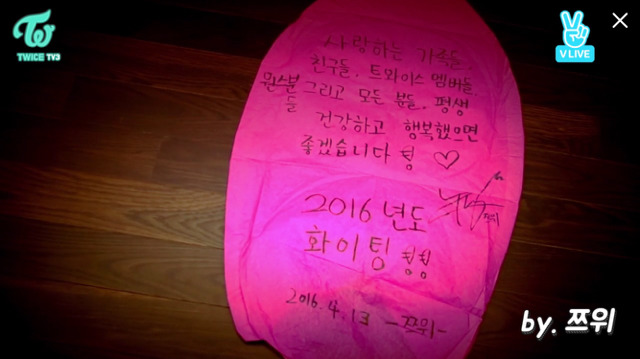 TWICE TV3
V LIVE
사랑하는 가족들,
친구들, 트와이스 멤버들,
원스분들 그리고 모든 분들, 평생
건강하고 행복했으면
좋겠습니다 힝 ♡
2016 년도
화이팅 힝힝
2016.4.13 -쯔위-
by. 쯔위